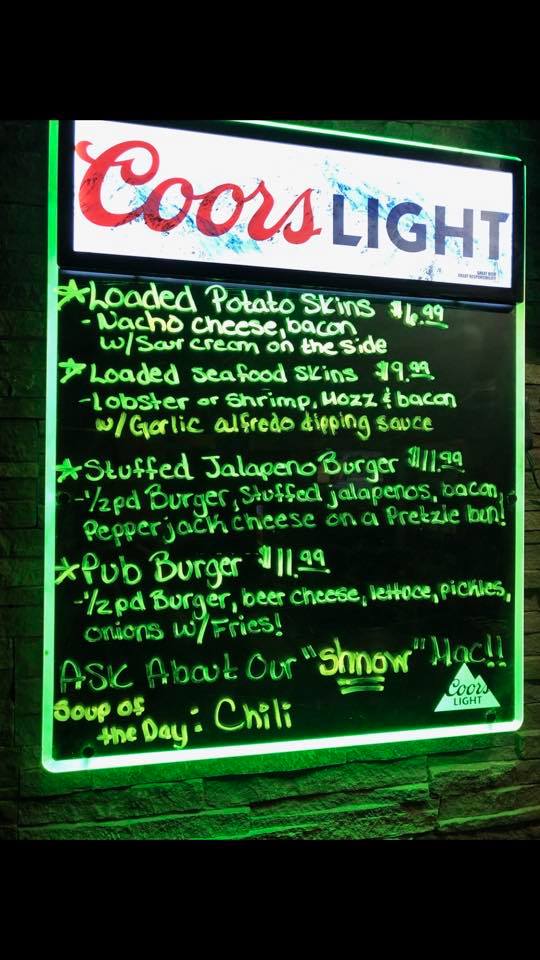 Coors LIGHT
GREAT BEER
GREAT RESPONSIBILITY
Loaded Potato Skins $6.99
- Nacho cheese, bacon
w/ Sour cream on the side
Loaded seafood skins $9.99
- lobster or shrimp, Mozz & bacon
w/ Garlic alfredo dipping sauce
Stuffed Jalapeno Burger $11.99
- 1/2 pd Burger, Stuffed jalapenos, bacon,
Pepperjack cheese on a Pretzle bun!
Pub Burger $11.99
- 1/2 pd Burger, beer cheese, lettuce, pickles,
onions w/ Fries!
ASK About Our "Shnow" Mac!!
Coors
LIGHT
Soup of
the Day: Chili